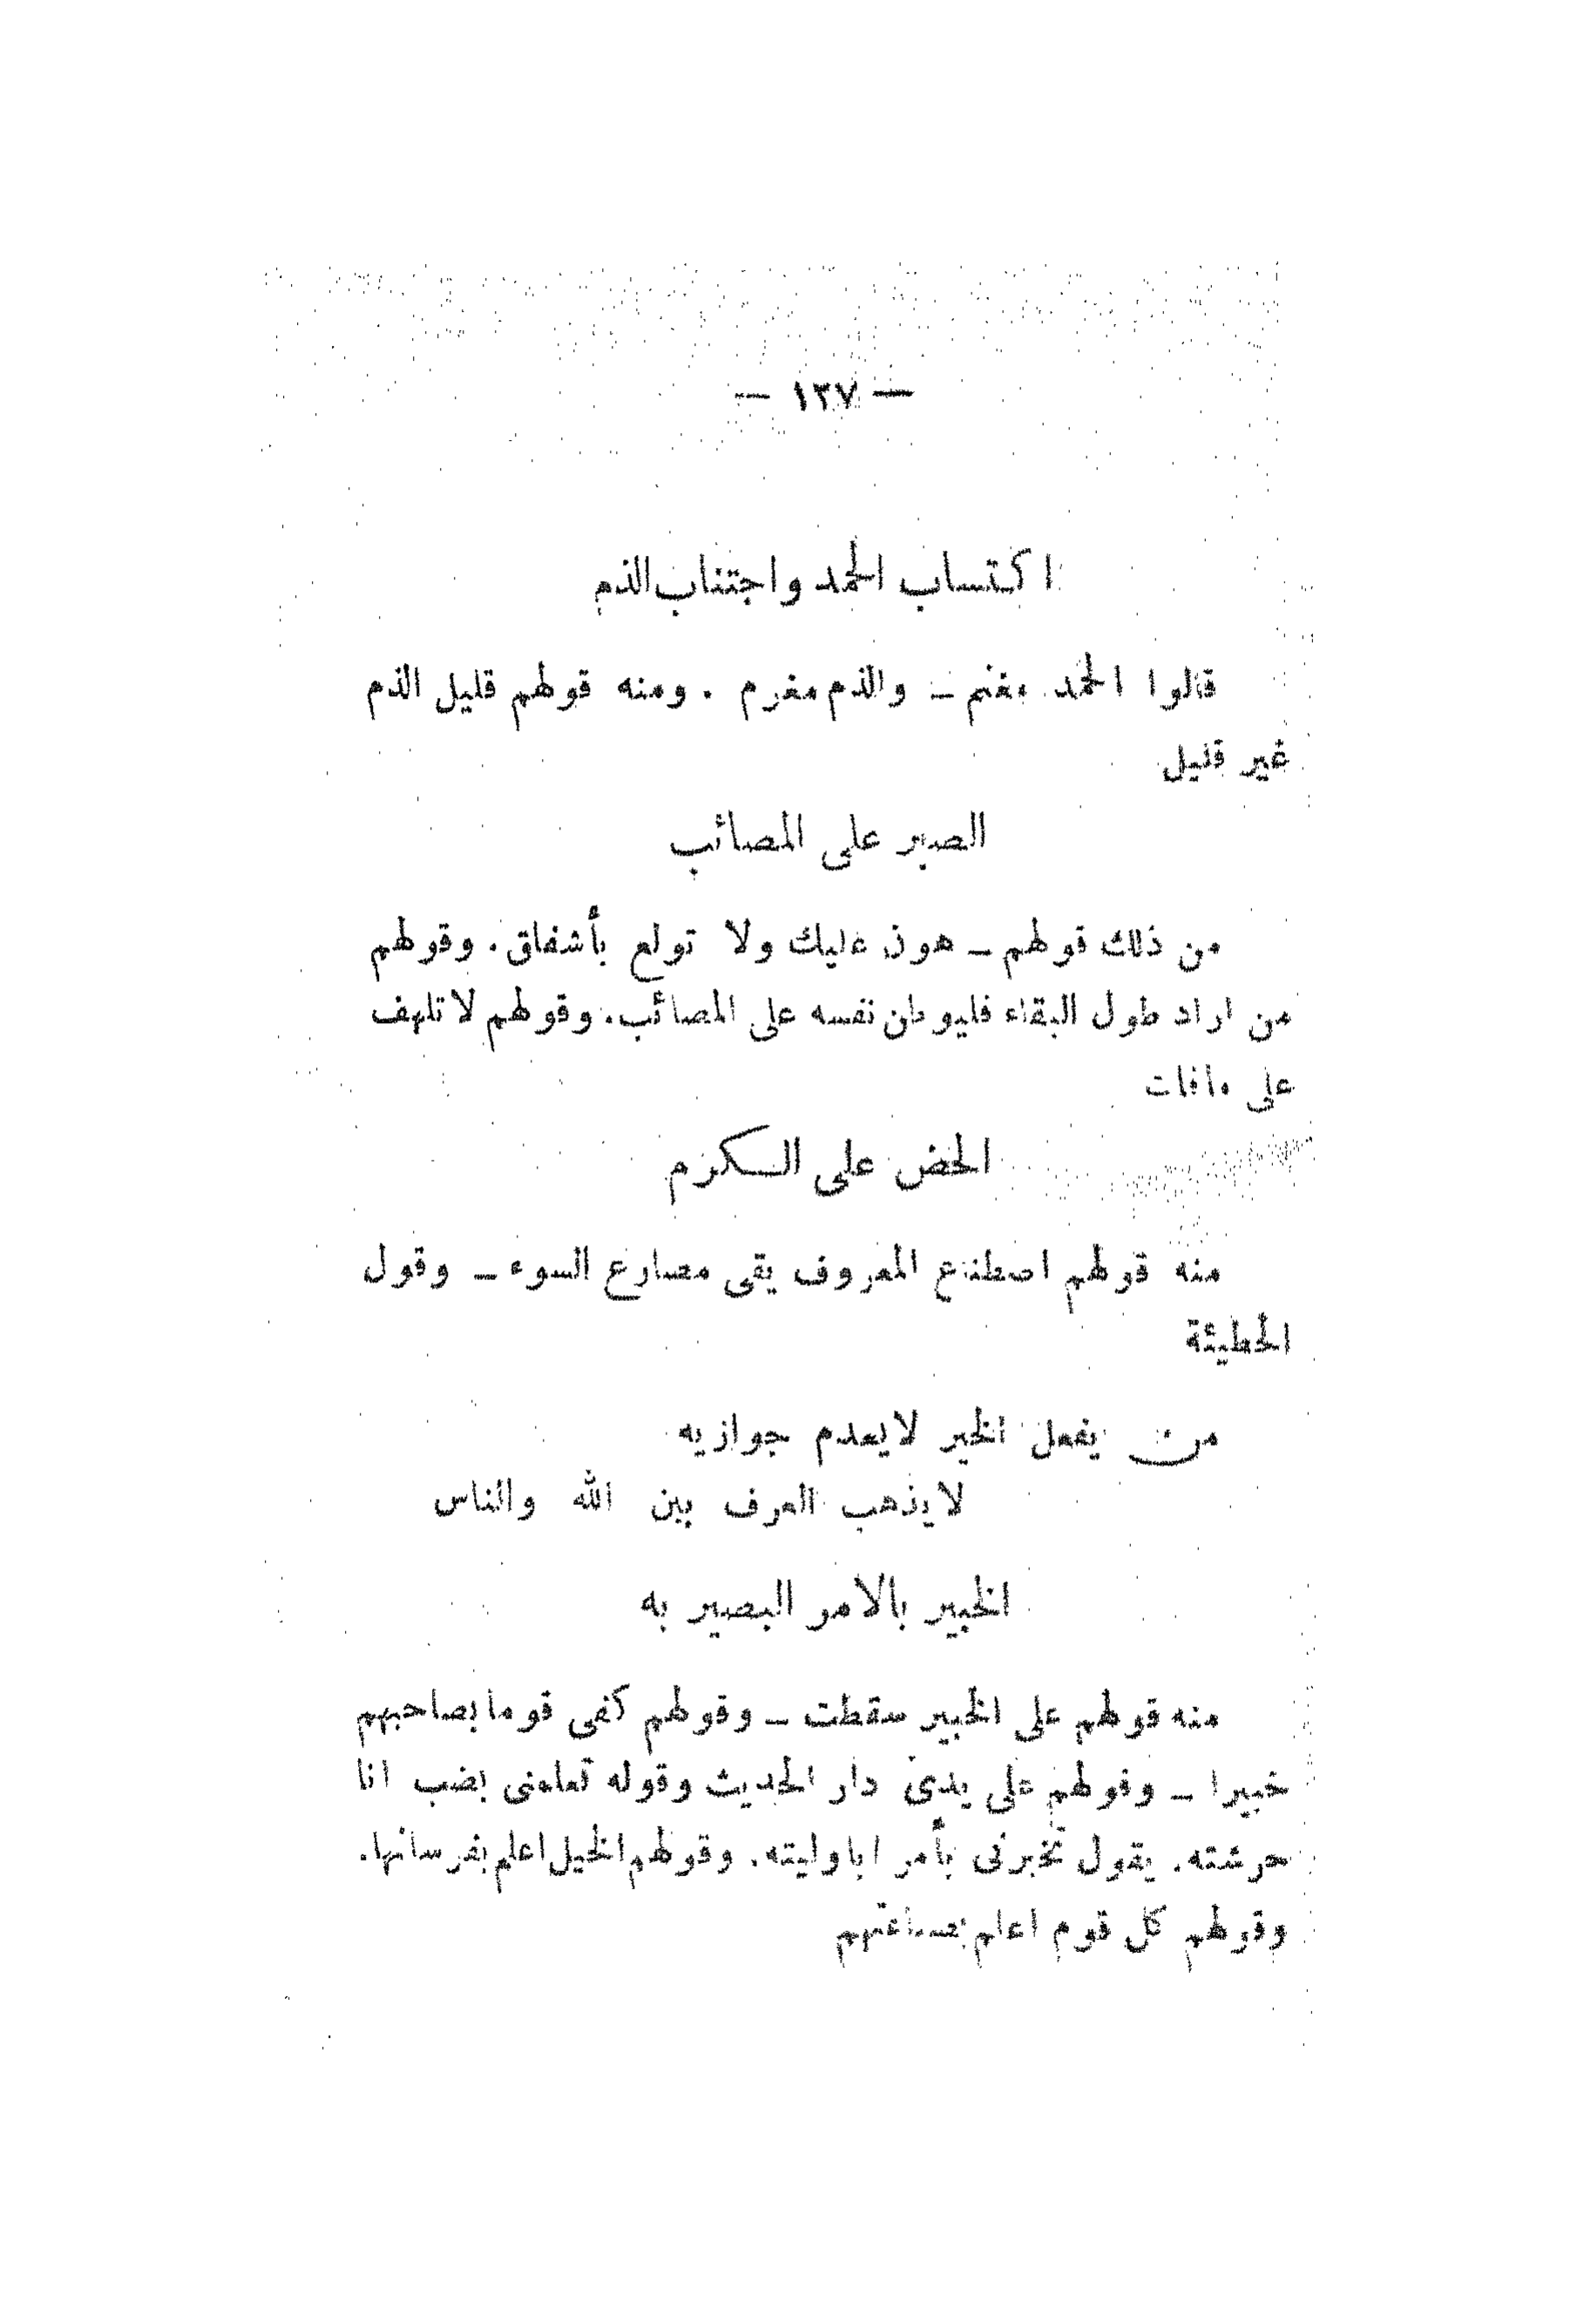 — ١٣٧ —
اكتساب الحمد واجتناب الذم
قالوا الحمد مغنم – والذم مغرم . ومنه قولهم قليل الذم
غير قليل
الصبر على المصائب
من ذلك قولهم – هون عليك ولا تولع بأشفاق. وقولهم
من اراد طول البقاء فليوطن نفسه على المصائب. وقولهم لا تلهف
على مافات
الحض على الكرم
منه قولهم اصطناع المعروف يقى مصارع السوء – وقول
الحطيئة
من يفعل الخير لايعدم جوازيه
لايذهب العرف بين الله والناس
الخبير بالامر البصير به
منه قولهم على الخبير سقطت – وقولهم كفى قوما بصاحبهم
خبيرا – وقولهم على يدى دار الحديث وقوله تعلمنى بضب انا
حرشته. يقول تخبرنى بأمر انا وليته. وقولهم الخيل اعلم بفرسانها.
وقولهم كل قوم اعلم بصناعتهم